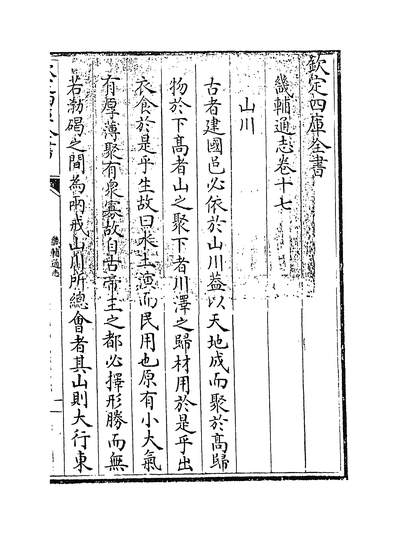 欽定四庫全書
畿輔通志卷十七
山川
古者建國邑必依於山川蓋以天地成而聚於髙歸
物於下髙者山之聚下者川澤之歸材用於是乎出
衣食於是乎生故曰水土演而民用也原有小大氣
有厚薄聚有衆寡故自古帝王之都必擇形勝而無
若渤碣之間為兩戒山川所總㑹者其山則大行東
畿輔通志